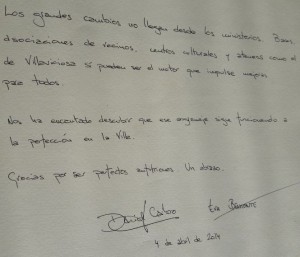 Los grandes cambios no llegan desde los ministerios. Pero
asociaciones de vecinos, centros culturales y ateneos como el
de Villaviciosa sí pueden ser el motor que impulse mejoras
para todos.
Nos ha encantado descubrir que ese engranaje sigue funcionando a
la perfección en la Villa.
Gracias por ser perfectos anfitriones. Un abrazo.
Daniel
Eva
4 de abril de 2014